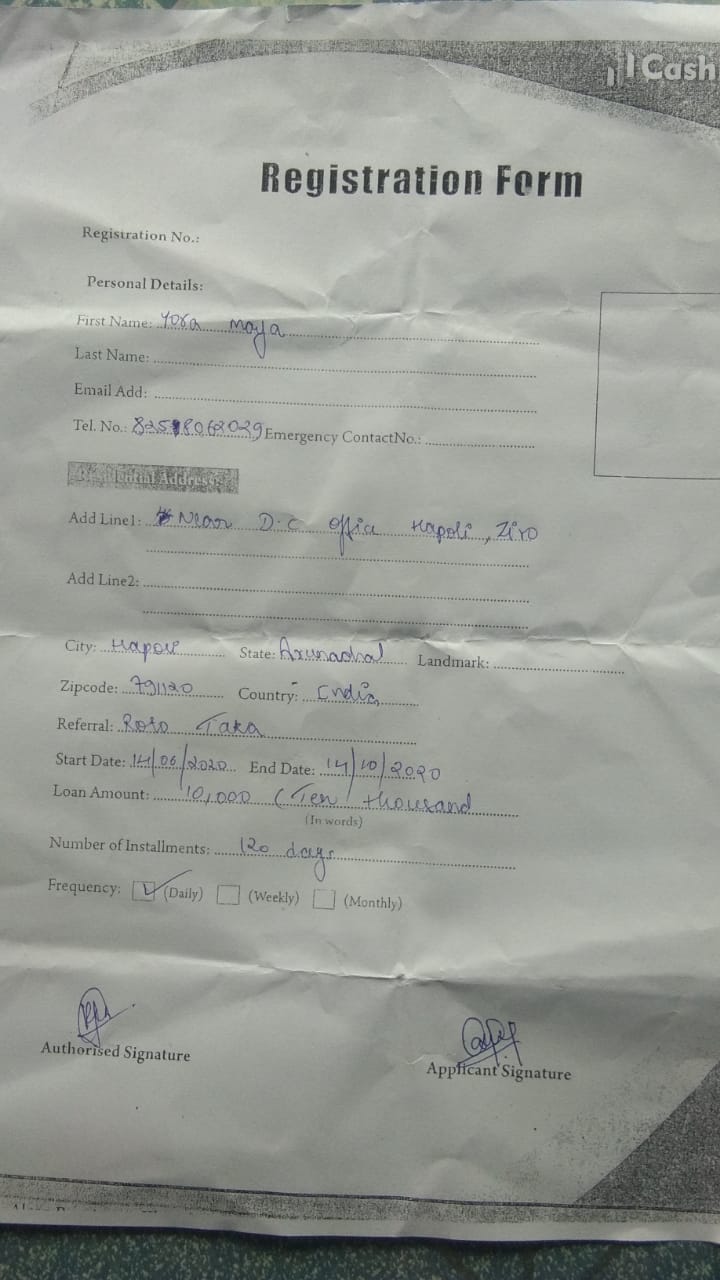 Cash
Registration Form
Registration No.:
Personal Details:
First Name: Yora Moya
Last Name:
Email Add:
Tel. No.: Emergency ContactNo.:
Residential Address:
Add Line1: Near D.C Office Hapoli, Ziro
Add Line2:
City: Hapoli State: Arunachal Landmark:
Zipcode: 791120 Country: India
Referral: Roto Taka
Start Date: 14/06/2020 End Date: 14/10/2020
Loan Amount: 10,000 (Ten thousand
(In words)
Number of Installments: 120 days
Frequency: (Daily) (Weekly) (Monthly)
Authorised Signature
Applicant Signature